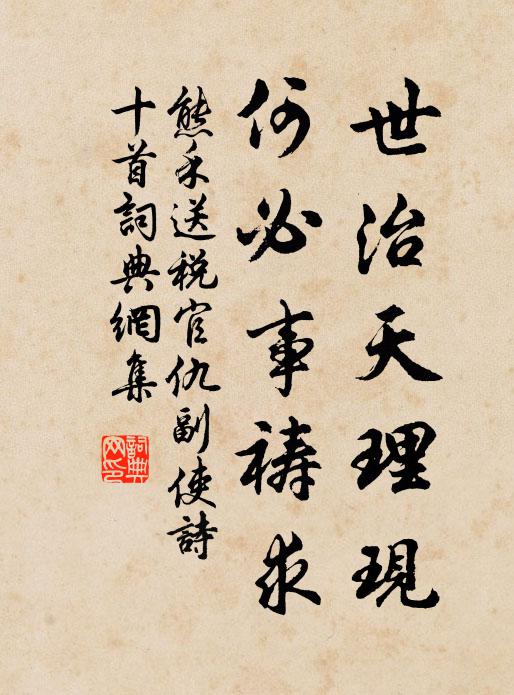 世治天理現
何必事禱求
熊禾送税官仇副使詩
十首詞典網集
詞典
网印